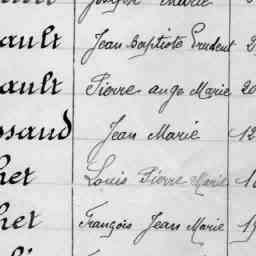 Joseph Marie
ault Jean Baptiste Prudent 2
ault Pierre ange Marie 20
ssaud Jean Marie 12
het Louis Pierre Marie 1
het François Jean Marie 19